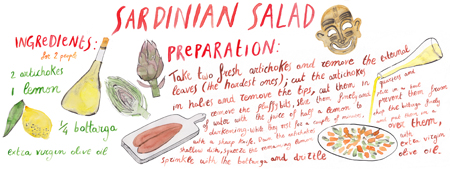 SARDINIAN SALAD
INGREDIENTS:
for 2 people
2 artichokes
1 lemon
1/4 bottarga
extra virgin olive oil
PREPARATION:
Take two fresh artichokes and remove the external
leaves (the hardest ones); cut the artichokes
in halves and remove the tips, cut them in
remove the fluff, slice them finely and
of water with the juice of half a lemon to prevent them from
darkening. while they rest for a couple of minutes, chop the bottarga finely
with a sharp knife. Drain the artichokes and put them in a
shallow dish, squeeze the remaining lemon over them,
sprinkle with the bottarga and drizzle with extra virgin
olive oil.